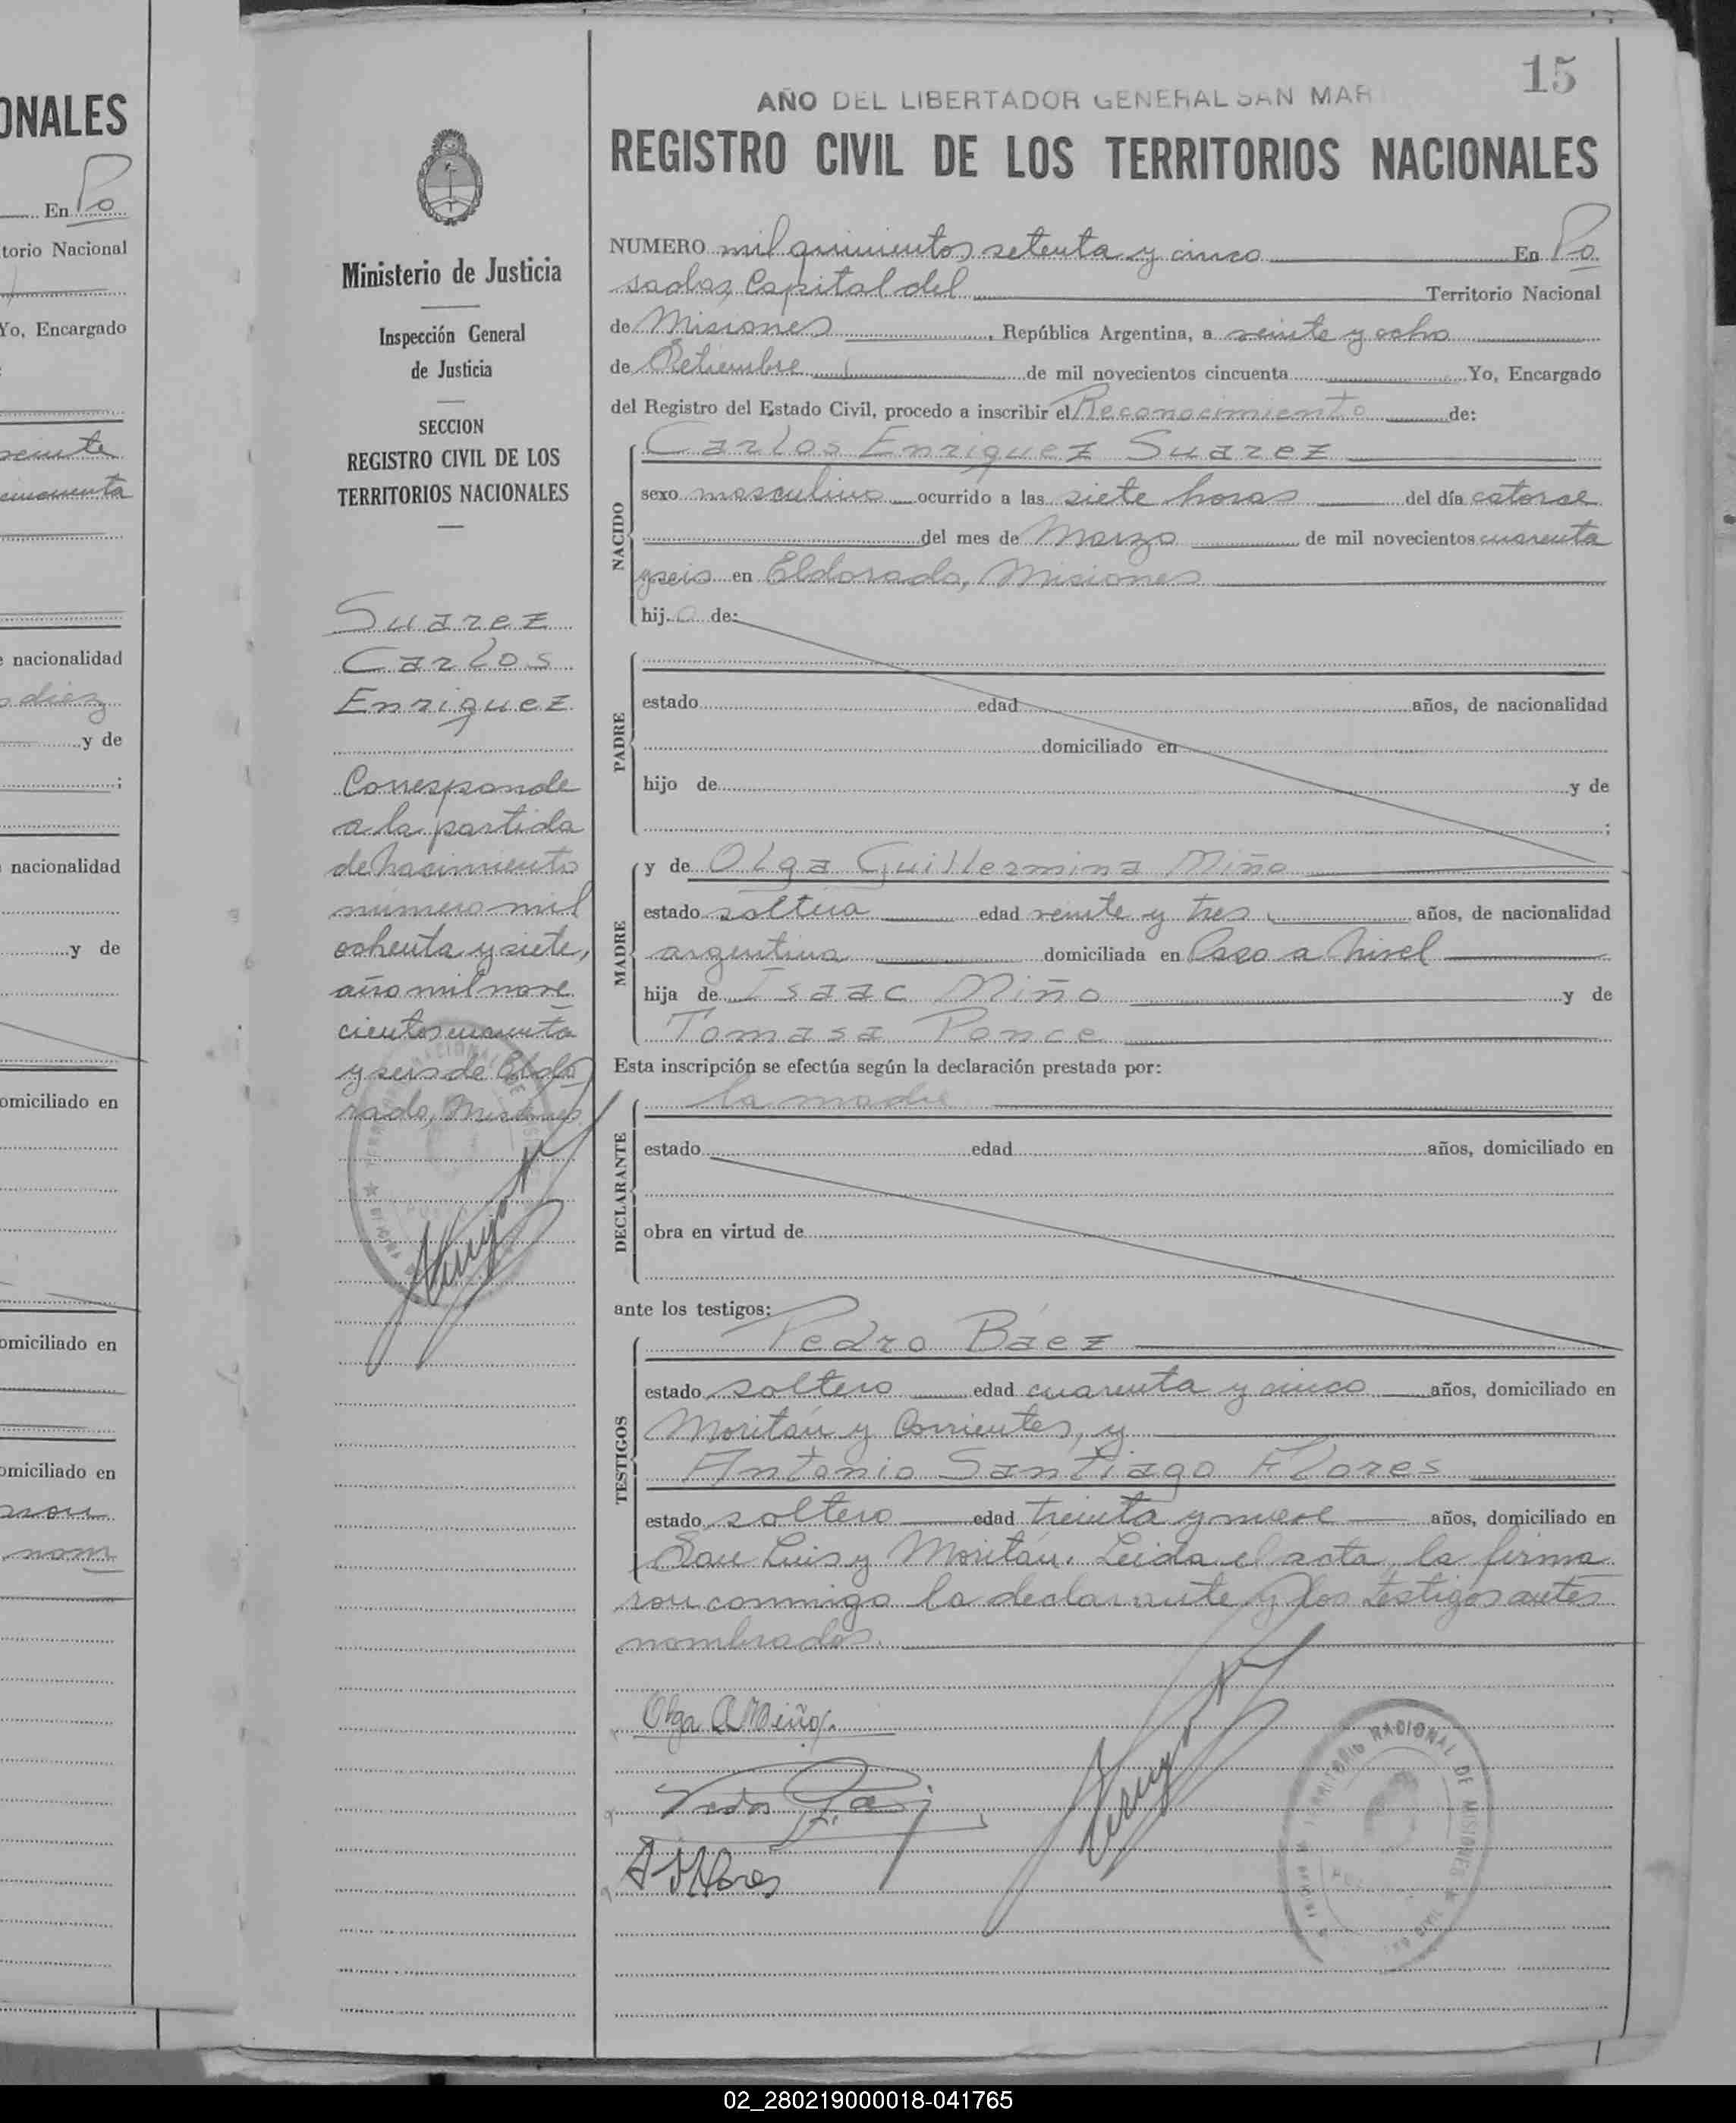 ONALES
En Po
torio Nacional
Yo, Encargado
veinte
cincuenta
nacionalidad
diez
y de
;
nacionalidad
y de
omiciliado en
omiciliado en
omiciliado en
ron
nom
15
AÑO DEL LIBERTADOR GENERAL SAN MAR
REGISTRO CIVIL DE LOS TERRITORIOS NACIONALES
Ministerio de Justicia
Inspección General
de Justicia
SECCION
REGISTRO CIVIL DE LOS
TERRITORIOS NACIONALES
Suarez
Carlos
Enriquez
Corresponde
a la partida
de nacimiento
número mil
ochenta y siete,
año mil nove
cientos cuarenta
y seis de Eldo
rado, Misiones
NUMERO mil quinientos setenta y cinco En Po
sadas, Capital del Territorio Nacional
de Misiones, República Argentina, a veinte y ocho
de Setiembre de mil novecientos cincuenta Yo, Encargado
del Registro del Estado Civil, procedo a inscribir el Reconocimiento de:
NACIDO
Carlos Enriquez Suarez
sexo masculino ocurrido a las siete horas del día catorce
del mes de Marzo de mil novecientos cuarenta
y seis en Eldorado, Misiones
hijo de:
PADRE
estado edad años, de nacionalidad
domiciliado en
hijo de y de
;
MADRE
y de Olga Guillermina Miño
estado soltera edad veinte y tres años, de nacionalidad
argentina domiciliada en Paso a Nivel
hija de Isaac Miño y de
Tomasa Ponce
Esta inscripción se efectúa según la declaración prestada por:
DECLARANTE
la madre
estado edad años, domiciliado en
obra en virtud de
ante los testigos:
TESTIGOS
Pedro Báez
estado soltero edad cuarenta y cinco años, domiciliado en
Moritán y Corrientes, y
Antonio Santiago Flores
estado soltero edad treinta y nueve años, domiciliado en
San Luis y Moritán. Leida el acta, la firma
ron conmigo la declarante y los testigos antes
nombrados.
Olga Miño
A S Flores
TERRITORIO NACIONAL DE MISIONES
02_280219000018-041765